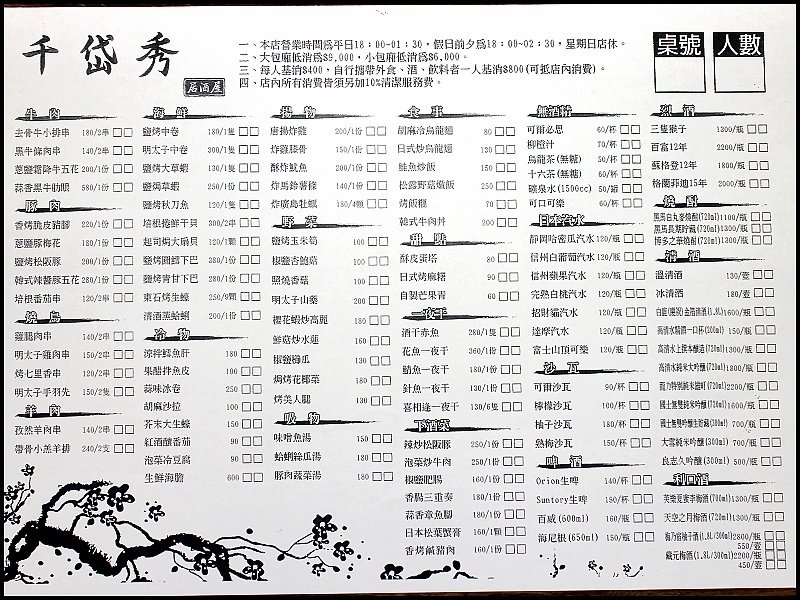 千岱秀
居酒屋
一、本店營業時間爲平日18：00~01：30，假日前夕爲18：00~02：30，星期日店休。
二、大包廂低消爲$9,000，小包廂低消爲$6,000。
三、每人基消$400，自行攜帶外食、酒、飲料者一人基消$800(可抵店內消費)。
四、店內所有消費皆須另加10%清潔服務費。
桌號
人數
牛肉
去骨牛小排串 180/2串
黑牛條肉串 140/2串
蔥鹽霜降牛五花 200/1份
蒜香黑牛肋眼 580/1份
豚肉
香烤脆皮豬腳 220/1份
蔥鹽豚梅花 180/1份
鹽烤松阪豚 200/1份
韓式辣醬豚五花 280/1份
培根番茄串 120/2串
燒鳥
雞腿肉串 140/2串
明太子雞肉串 150/2串
烤七里香串 120/2串
明太子手羽先 150/2隻
羊肉
孜然羊肉串 140/2串
帶骨小羔羊排 240/2支
海鮮
鹽烤中卷 180/1隻
明太子中卷 300/1隻
鹽烤大草蝦 130/1隻
鹽焗草蝦 250/1份
鹽烤秋刀魚 120/1隻
培根捲鮮干貝 300/2串
起司焗大扇貝 120/1顆
鹽烤圃鱈下巴 380/1份
鹽烤青甘下巴 280/1份
東石烤生蠔 250/9顆
清酒蒸蛤蜊 200/1份
冷物
涼拌鱈魚肝 180
果醋拌魚皮 100
蒜味冰卷 250
胡麻沙拉 100
芥末大生蠔 150
紅酒釀番茄 90
泡菜冷豆腐 90
生鮮海膽 600
揚物
唐揚炸雞 200/1份
炸雞膝骨 150/1份
酥炸魷魚 200/1份
炸馬鈴薯條 140/1份
炸廣島牡蠣 130/4顆
野菜
鹽烤玉米筍 100
椒鹽杏鮑菇 100
照燒香菇 100
明太子山藥 200
櫻花蝦炒高麗 180
鮮菇炒水蓮 160
椒鹽櫛瓜 130
焗烤花椰菜 180
烤美人腿 130
吸物
味噌魚湯 150
蛤蜊絲瓜湯 180
豚肉蔬菜湯 180
食事
胡麻冷烏龍麵 80
日式炒烏龍麵 130
鮭魚炒飯 150
松露野菇燉飯 250
烤飯糰 70
韓式牛肉丼 200
甜點
酥皮蛋塔 80
日式烤麻糬 90
自製芒果青 60
一夜干
酒干赤魚 280/1隻
花魚一夜干 360/1份
鯖魚一夜干 180/1份
針魚一夜干 130/1份
喜相逢一夜干 130/6隻
下酒菜
辣炒松阪豚 250/1份
泡菜炒牛肉 250/1份
椒鹽肥腸 160/1份
香腸三重奏 180/1份
蒜香章魚腳 180/1份
日本松葉蟹膏 160/1顆
香烤鹹豬肉 160/1份
無酒精
可爾必思 60/杯
柳橙汁 70/杯
烏龍茶(無糖) 50/杯
十六茶(無糖) 60/杯
礦泉水(1500cc) 50/罐
可口可樂 60/杯
日本汽水
靜岡哈密瓜汽水 120/瓶
信州白葡萄汽水 120/瓶
信州蘋果汽水 120/瓶
完熟白桃汽水 120/瓶
招財貓汽水 120/瓶
達摩汽水 120/瓶
富士山頂可樂 120/瓶
沙瓦
可爾沙瓦 90/杯
檸檬沙瓦 100/杯
柚子沙瓦 180/杯
熟梅沙瓦 150/杯
啤酒
Orion生啤 140/杯
Suntory生啤 150/杯
百威(600ml) 160/瓶
海尼根(650ml) 150/瓶
烈酒
三隻猴子 1300/瓶
百富12年 2200/瓶
蘇格登12年 1800/瓶
格蘭菲迪15年 2000/瓶
燒酎
黑馬白丸麥燒酎(720ml) 1100/瓶
黑馬長期貯藏(720ml) 1300/瓶
博多之華燒酎(720ml) 1300/瓶
清酒
溫清酒 130/壺
冰清酒 180/壺
高清水純米大吟釀(720ml) 1800/瓶
國士無雙純米吟釀(720ml) 1600/瓶
國士無雙純米吟釀(300ml) 700/瓶
大雪純米吟釀(300ml) 700/瓶
良志久吟釀(300ml) 500/瓶
利口酒
芙樂夏蜜李梅酒(700ml) 1300/瓶
天空之月梅酒(720ml) 1300/瓶
梅乃宿柚子酒(1.8L/300ml) 2800/瓶
550/壺
藏元梅酒(1.8L/300ml) 2200/瓶
450/壺